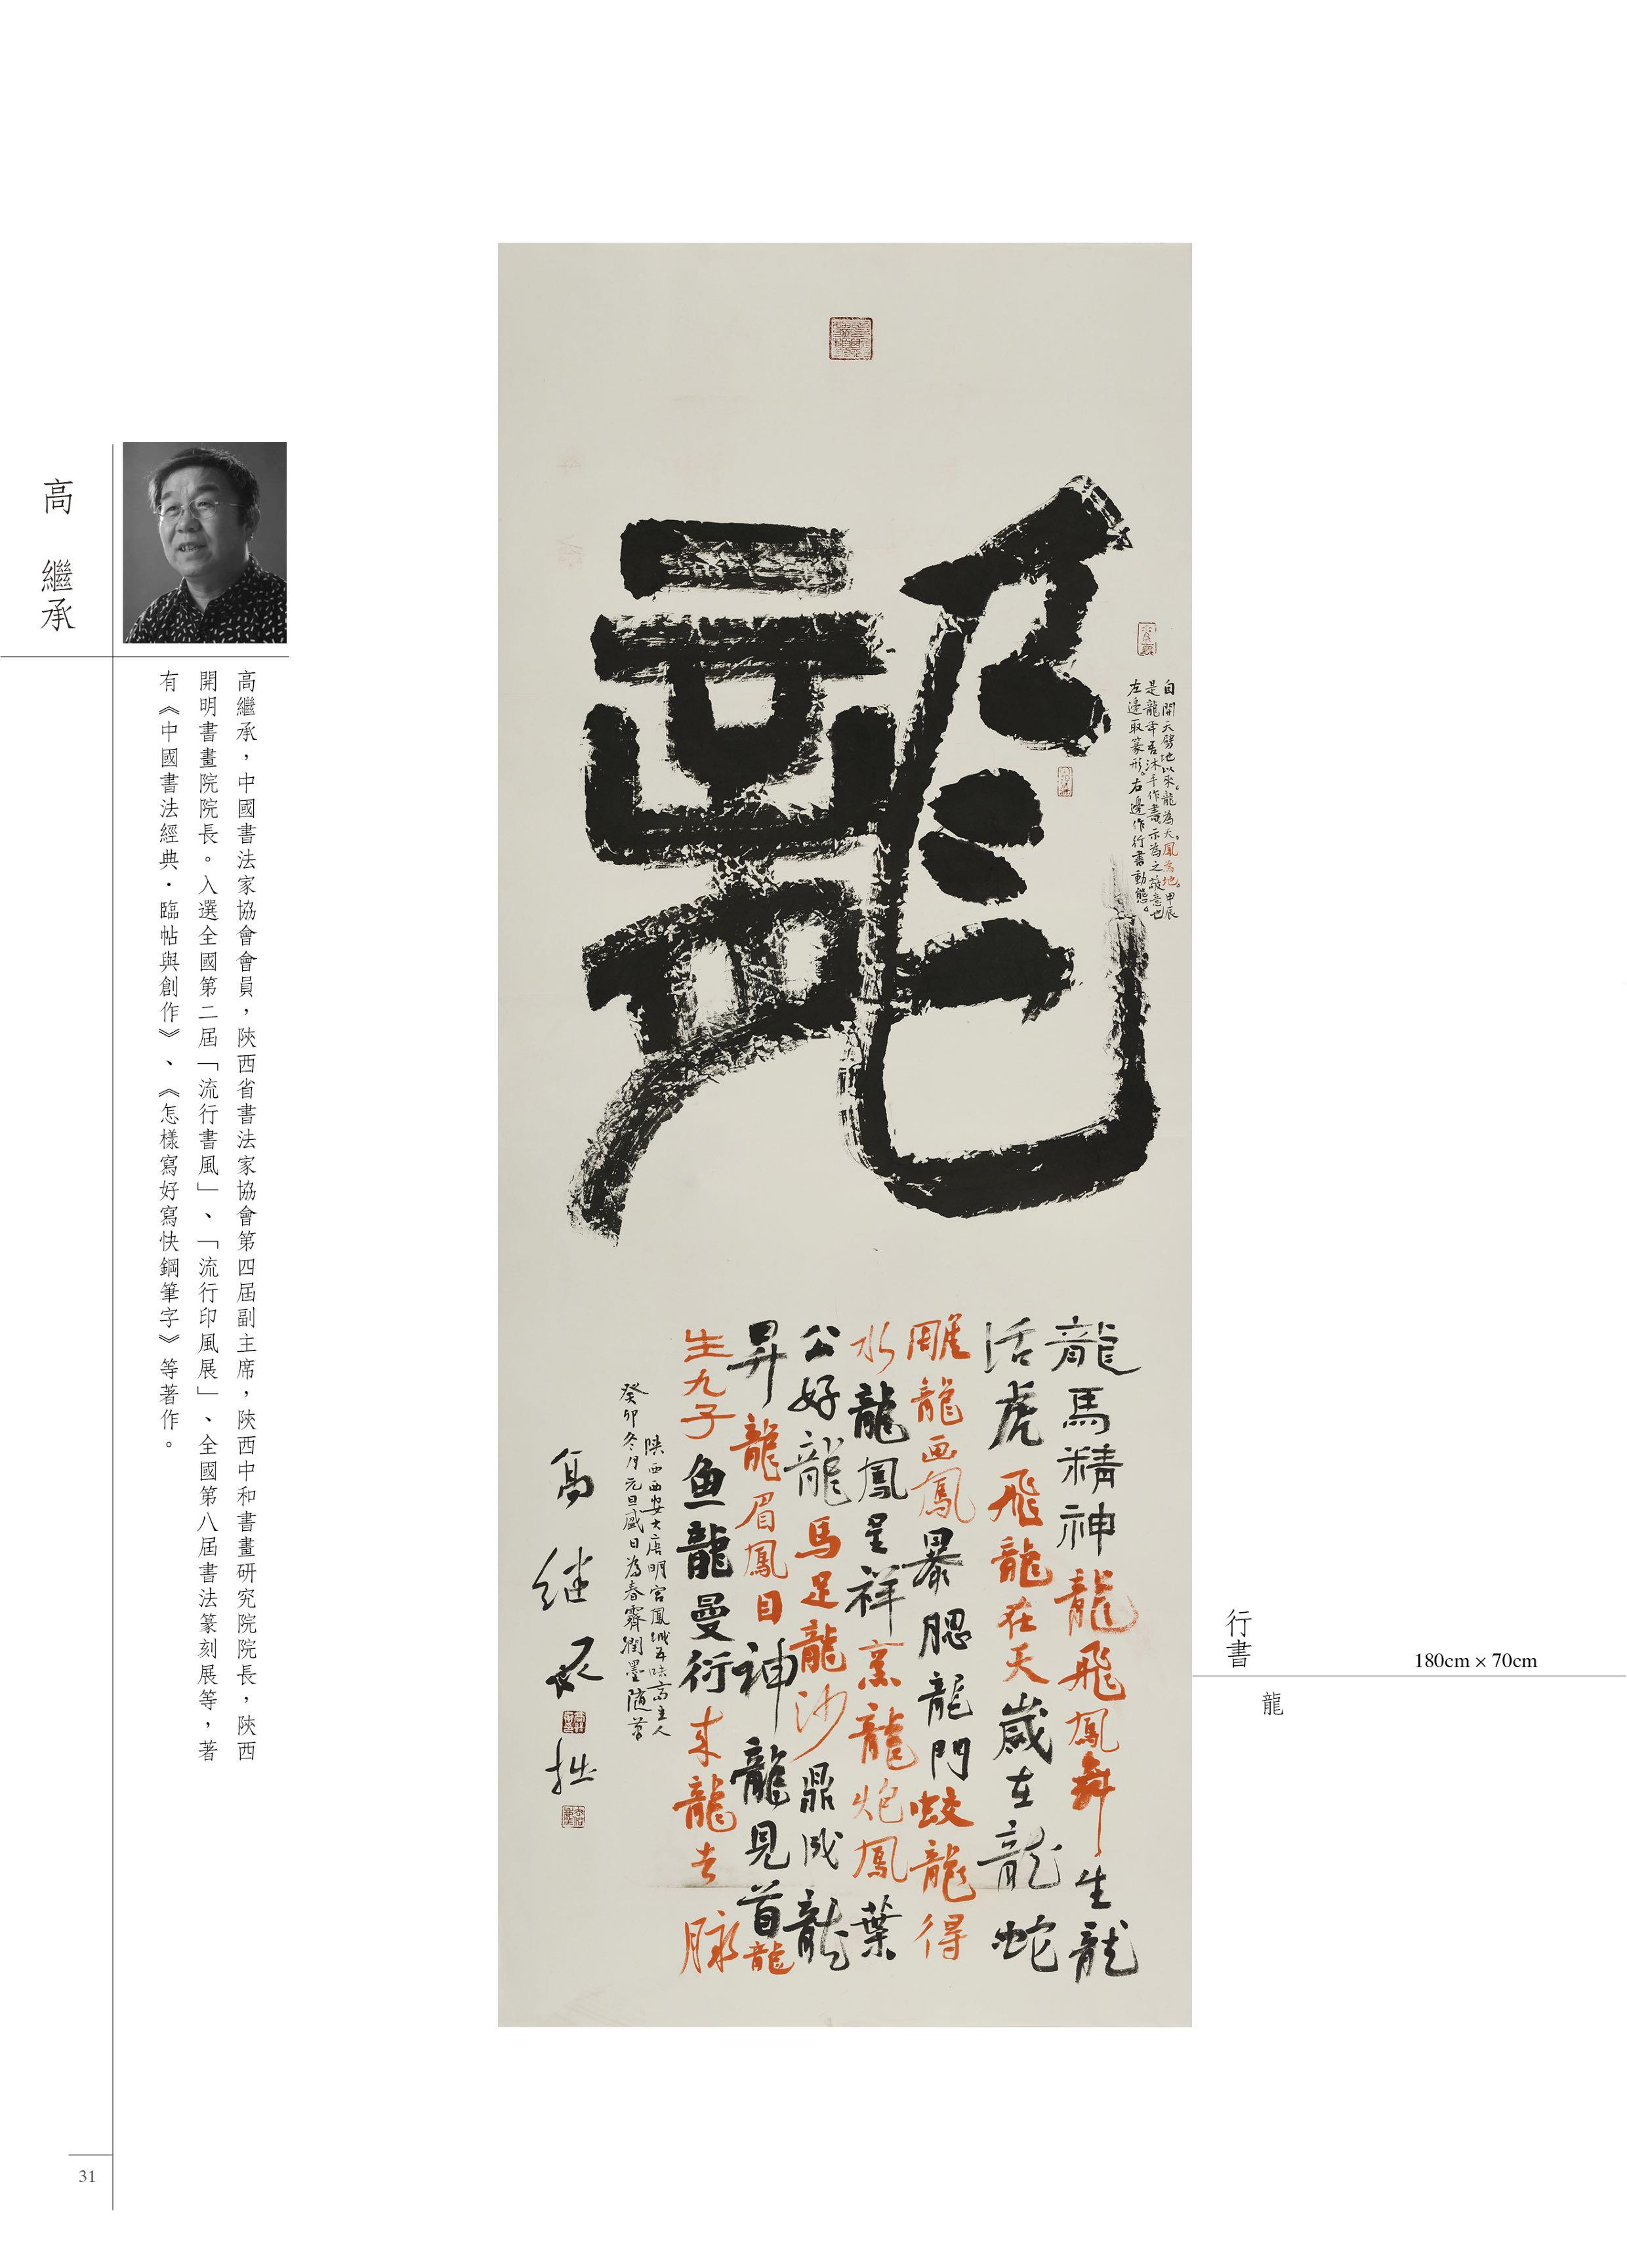 龍
自開天劈地以來。龍為天。鳳為地。甲辰
是龍年吾沐手作書示為之敬意也
左邊取篆形。右邊作行書動態。
龍馬精神龍飛鳳舞生龍
活虎飛龍在天歲在龍蛇
雕龍画鳳暴腮龍門蛟龍得
水龍鳳呈祥烹龍炮鳳葉
公好龍馬足龍沙鼎成龍
昇龍眉鳳目神龍見首龍
生九子魚龍曼衍來龍去脉
陝西西安大唐明宮鳳城五味齋主人
癸卯冬月元旦盛日為春霽潤墨隨筆
高继承拙
行書
龍
180cm × 70cm
高繼承
高繼承，中國書法家協會會員，陝西省書法家協會第四屆副主席，陝西中和書畫研究院院長，陝西
開明書畫院院長。入選全國第二屆「流行書風」、「流行印風展」、全國第八屆書法篆刻展等，著
有《中國書法經典·臨帖與創作》、《怎樣寫好寫快鋼筆字》等著作。
31